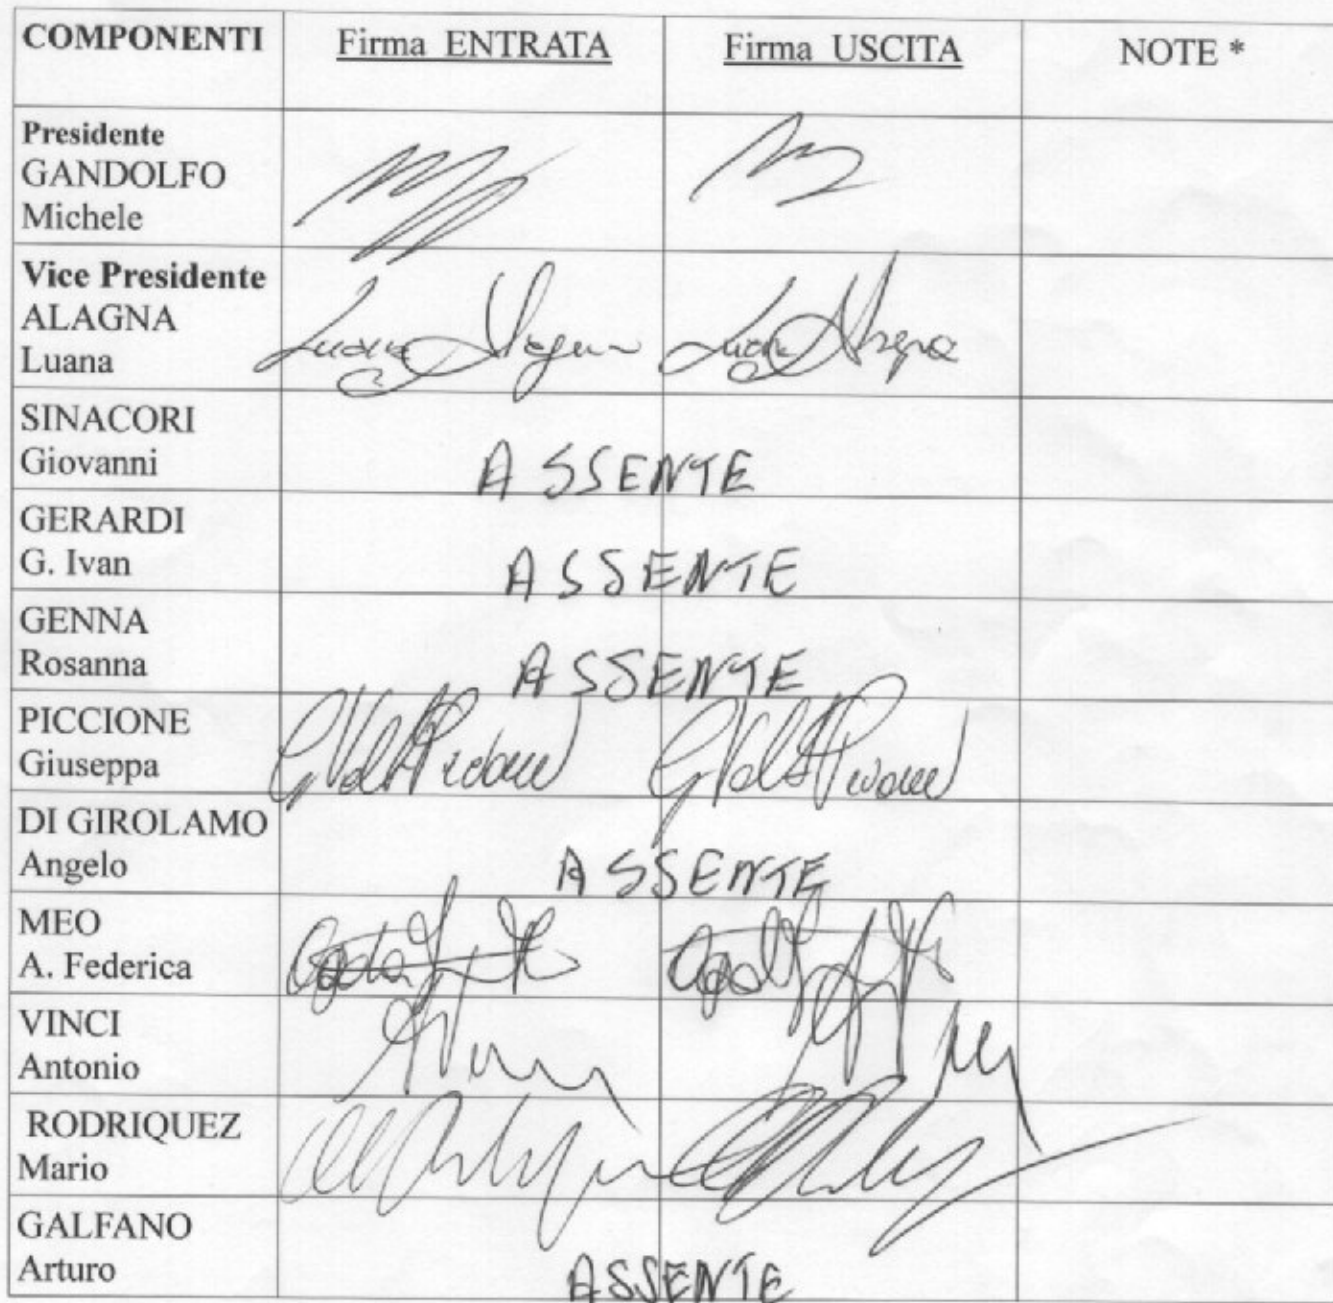 COMPONENTI Firma ENTRATA Firma USCITA NOTE *
Presidente
GANDOLFO
Michele
Vice Presidente
ALAGNA
Luana
Luana Alagna Luana Alagna
SINACORI
Giovanni
ASSENTE
GERARDI
G. Ivan
ASSENTE
GENNA
Rosanna
ASSENTE
PICCIONE
Giuseppa
DI GIROLAMO
Angelo
ASSENTE
MEO
A. Federica
VINCI
Antonio
RODRIQUEZ
Mario
GALFANO
Arturo
ASSENTE